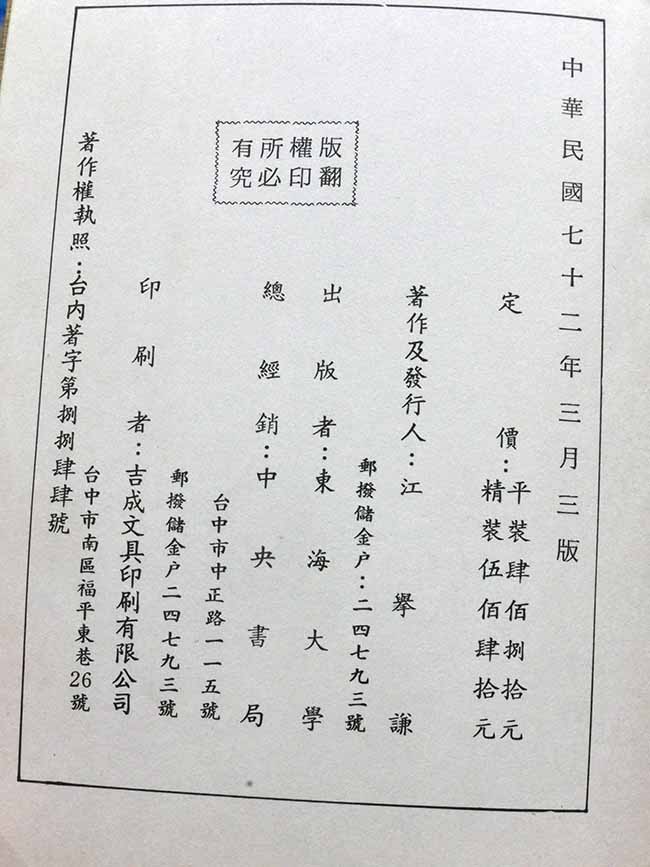 中華民國七十二年三月三版
定價：平裝肆佰捌拾元
精裝伍佰肆拾元
著作及發行人：江舉謙
郵撥儲金户：二四七九三號
出版者：東海大學
總經銷：中央書局
台中市中正路一一五號
郵撥儲金户二四七九三號
印刷者：吉成文具印刷有限公司
台中市南區福平東巷26號
著作權執照：台內著字第捌捌肆肆號
版權所有
翻印必究